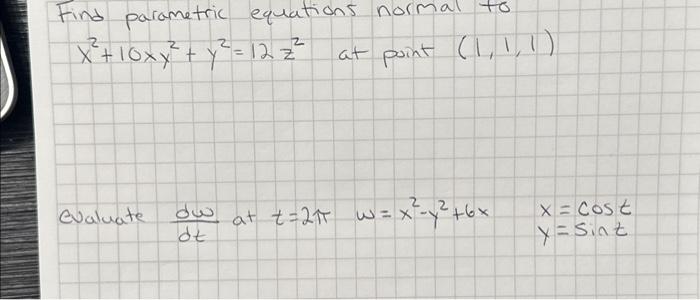 Find parametric equations normal to
x²+10xy²+y²=12z² at point (1,1,1)
evaluate dw/dt at t=2π w=x²-y²+6x x=cost
y=sint